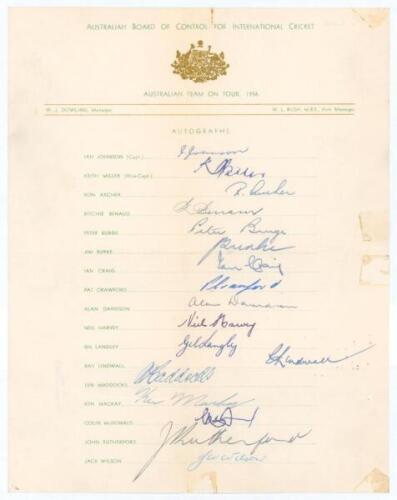 AUSTRALIAN BOARD OF CONTROL FOR INTERNATIONAL CRICKET
AUSTRALIAN TEAM ON TOUR, 1956
W. J. DOWLING, Manager. W. L. RUSH, M.B.E., Asst. Manager.
AUTOGRAPHS
IAN JOHNSON (Capt.) I Johnson
KEITH MILLER (Vice-Capt.)
RON ARCHER R. Archer
RITCHIE BENAUD R Benaud
PETER BURGE Peter Burge
JIM BURKE J Burke
IAN CRAIG Ian Craig
PAT CRAWFORD P Crawford
ALAN DAVIDSON Alan Davidson
NEIL HARVEY Neil Harvey
GIL LANGLEY Gil Langley
RAY LINDWALL R Lindwall
LEN MADDOCKS L Maddocks
KEN MACKAY Ken Mackay
COLIN McDONALD
JOHN RUTHERFORD J Rutherford
JACK WILSON J W Wilson